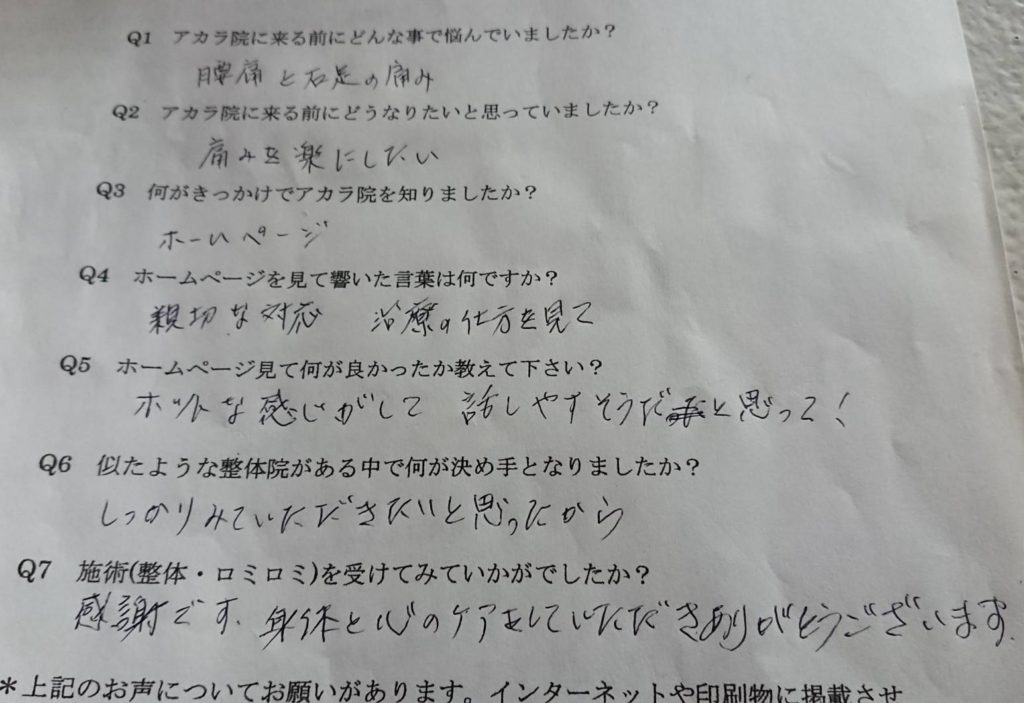 Q1 アカラ院に来る前にどんな事で悩んでいましたか？
腰痛と右足の痛み
Q2 アカラ院に来る前にどうなりたいと思っていましたか？
痛みを楽にしたい
Q3 何がきっかけでアカラ院を知りましたか？
ホームページ
Q4 ホームページを見て響いた言葉は何ですか？
親切な対応 治療の仕方を見て
Q5 ホームページ見て何が良かったか教えて下さい？
ホットな感じがして 話しやすそうだと思って！
Q6 似たような整体院がある中で何が決め手となりましたか？
しっかりみていただきたいと思ったから
Q7 施術(整体・ロミロミ)を受けてみていかがでしたか？
感謝です、身体と心のケアをしていただきありがとうございます.
＊上記のお声についてお願いがあります。インターネットや印刷物に掲載させ